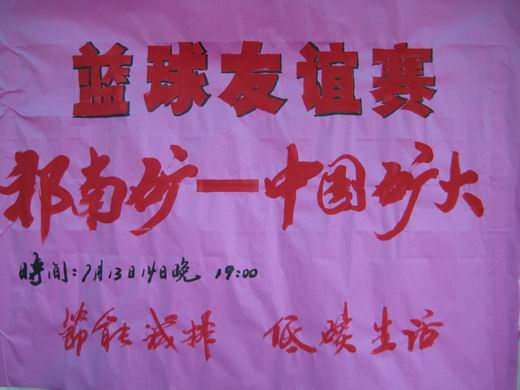 篮球友谊赛
祁南矿——中国矿大
時间:7月13日14日晚 19:00
节能减排 低碳生活